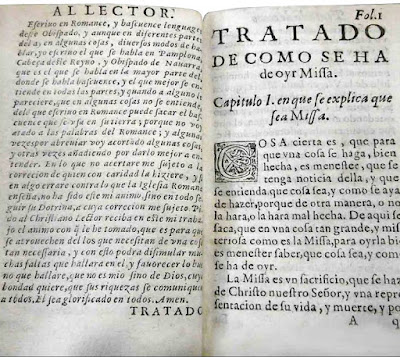 AL LECTOR.
Escriuo en Romance, y bascuence lenguages
deste Obispado, y aunque en diferentes partes
del ay en algunas cosas, diuersos modos de ha-
blar, yo escriuo el que se habla en Pamplona,
Cabeça deste Reyno, y Obispado de Nauarra,
que es el que se habla en la mayor parte del,
donde se habla bascuence, y el que mejor se en-
tiende en todas las partes, y quando a algunos
pareciere, que en algunas cosas no se entiende,
deli que escriuo en Romance puede sacar el baf-
cuence que se vsa en su tierra, porque no voy
atado a las palabras del Romance; y algunas
vezes por abreuiar voy acortando algunas cosas,
y otras vezes añadiendo por darlo mejor a en-
tender. En lo que no acertare me sujeto a la
correcion de quien con caridad la hiziere, y si
en algo errare contra lo que la Iglesia Romana
enseña, no ha sido esse mi animo, sino en todo se-
guir su Dotrina, cuya correcion me sujeto. Pi-
do al Christiano Lector reciba en este mi traba-
jo el animo con que le he tomado, que es para que
se aprouechen del los que necesitan de vna cosa
tan necessaria, y con esto podra disimular mu-
chas faltas que hallara en el, y fauorecer lo bue-
no que hallare, que no es mio sino de Dios, cuya
bondad quiere, que sus riquezas se comuniquen
a todos. El sea glorificado en todos. Amen.
TRATADO
Fol. 1
TRATADO
DE COMO SE HA
de oyr Missa.
Capitulo I. en que se explica que
sea Missa.
COSA cierta es, que para
que vna cosa se haga, bien
hecha, es menester, que se
tenga noticia della, y que
se entienda que cosa sea, y como se aya
de hazer, porque de otra manera, o no
la hara, o la hara mal hecha. De aqui se
saca, que en vna cosa tan grande, y mis-
teriosa como es la Missa, para oyrla bien
es menester saber, que cosa sea, y como
se ha de oyr.
La Missa es vn sacrificio, que se haze
de Christo nuestro Señor, y vna repre-
sentacion de su vida, y muerte, y por
A